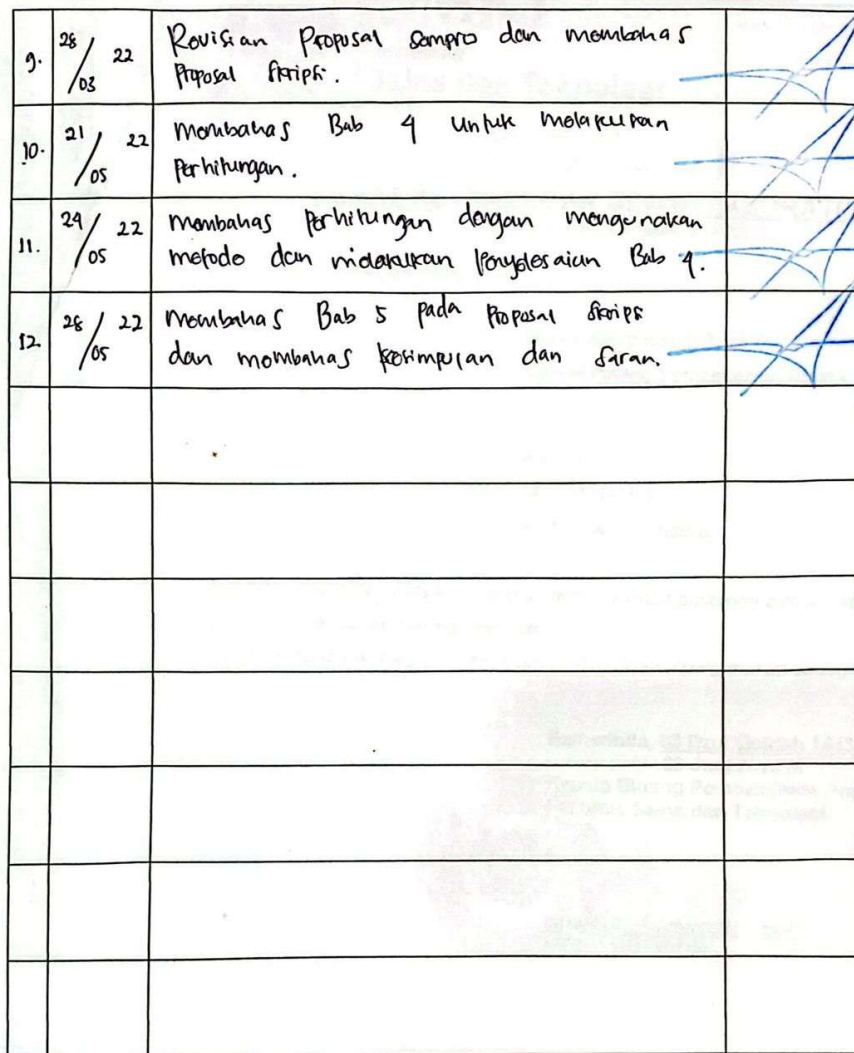 9. 28/03 22 Revisian Proposal sempro dan membahas
Proposal skripsi.
10. 21/05 22 membahas Bab 4 untuk melakukan
Perhitungan.
11. 24/05 22 membahas perhitungan dengan mengunakan
metode dan melakukan Penyelesaian Bab 4.
12. 28/05 22 membahas Bab 5 pada Proposal skripsi
dan membahas kesimpulan dan saran.